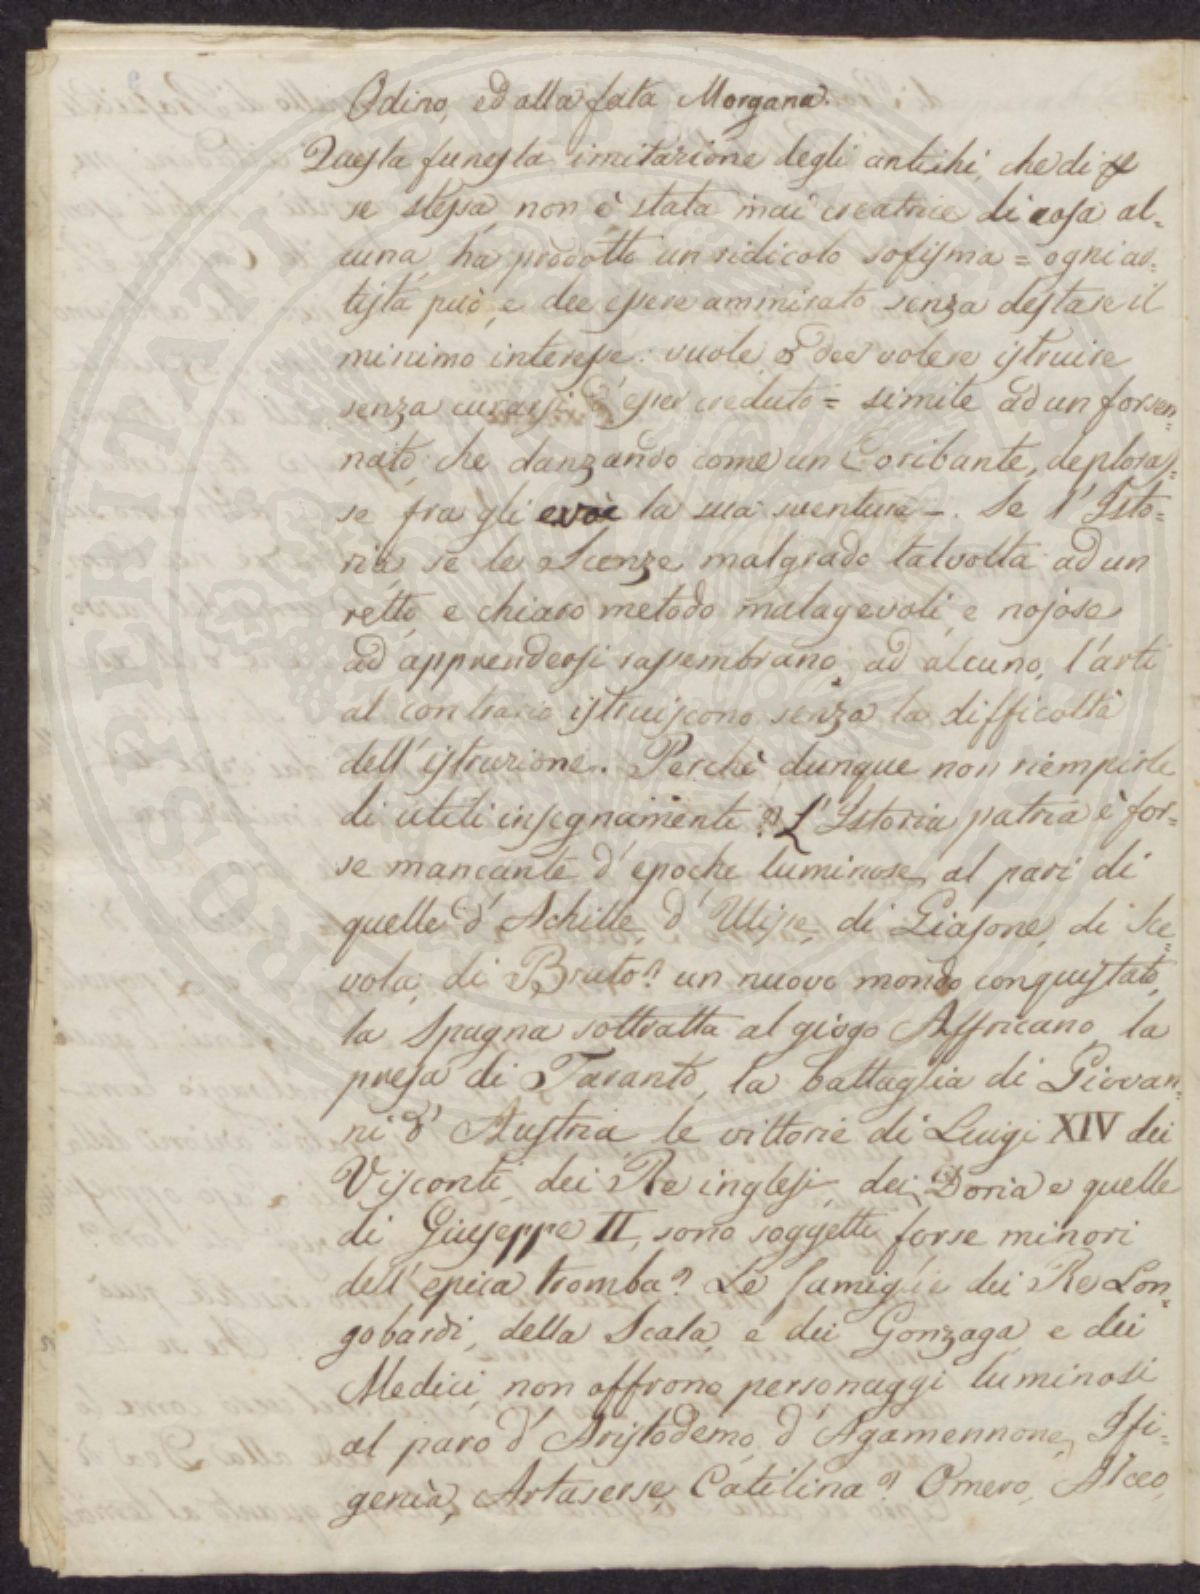 Odino, ed alla fata Morgana.
Questa funesta imitazione degli antichi, che di se
se stessa non è stata mai creatrice di cosa al=
cuna, ha prodotto un ridicolo sofisma = ogni ar=
tista può, e dee essere ammirato senza destare il
minimo interesse: vuole, e dee volere istruire
senza curarsi d'esser creduto = simile ad un forsen=
nato, che danzando come un Coribante, deploras=
se fra gli evoè la sua sventura -. Se l'Isto=
ria, se le Scienze malgrado talvolta ad un
retto, e chiaro metodo malagevoli, e nojose
ad apprendersi rassembrano ad alcuno, l'arti
al contrario istruiscono senza la difficoltà
dell'istruzione. Perchè dunque non riempirle
di utili insegnamenti? L'Istoria patria è for=
se mancante d'epoche luminose al pari di
quelle d'Achille, d'Ulisse, di Giasone, di Sce=
vola, di Bruto? un nuovo mondo conquistato,
la Spagna sottratta al giogo Affricano, la
presa di Taranto, la battaglia di Giovan=
ni d'Austria, le vittorie di Luigi XIV dei
Visconti, dei Re inglesi, dei Doria e quelle
di Giuseppe II, sono soggetti forse minori
dell'epica tromba? Le famiglie dei Re Lon=
gobardi, della Scala, e dei Gonzaga, e dei
Medici, non offrono personaggi luminosi
al paro d'Aristodemo, d'Agamennone, Ifi=
genia, Artaserse, Catilina? Omero, Alceo,
PROSPERITATI PUBLICAE